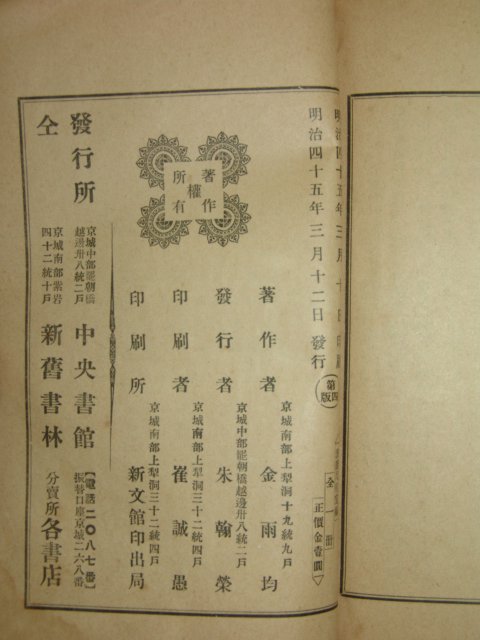 明治四十五年三月十日印刷
明治四十五年三月十二日發行
第四版
全一冊
正價金壹圜
著作權所有
京城南部上犁洞十九統九戶
著作者 金雨均
京城中部罷朝橋越邊卅八統二戶
發行者 朱翰榮
京城南部上犁洞三十二統四戶
印刷者 崔誠愚
京城南部上犁洞三十二統四戶
印刷所 新文館印出局
發行所
京城中部罷朝橋
越邊卅八統二戶
中央書館
【電話二〇八七番】
振替口座京城二六八番
仝
京城南部紫岩
四十二統十戶
新舊書林
分賣所 各書店